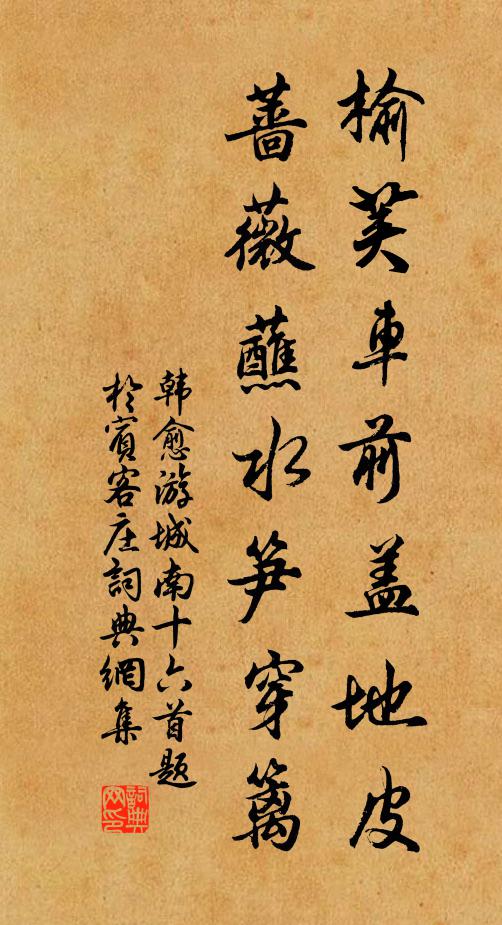 榆荚车前盖地皮
蔷薇蘸水笋穿篱
韩愈游城南十六首题
於宾客庄词典网集
词典网印